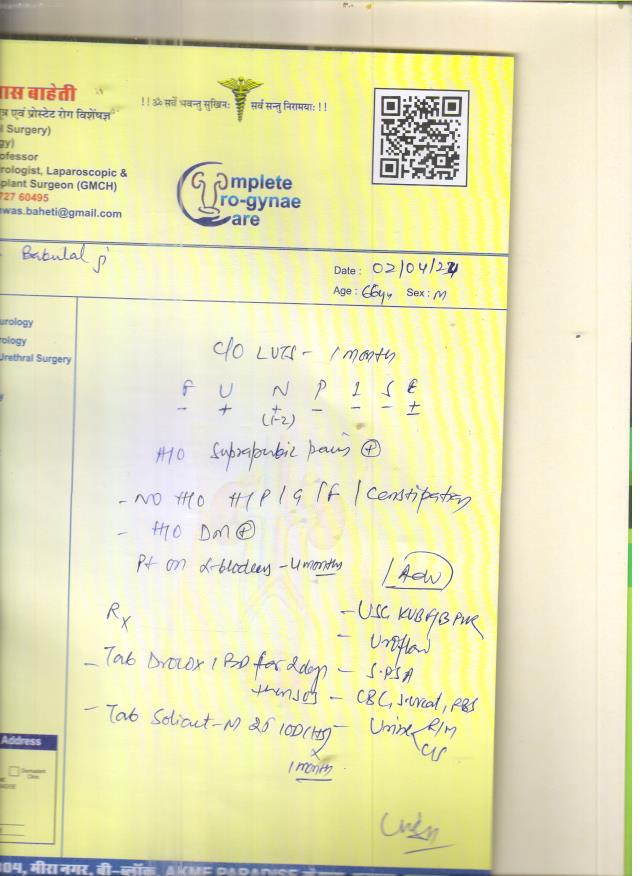 ास बाहेती
!! ॐ सर्वे भवन्तु सुखिनः सर्व सन्तु निरामयाः !!
ूत्र एवं प्रोस्टेट रोग विशेषज्ञ
l Surgery)
gy)
ofessor
rologist, Laparoscopic &
plant Surgeon (GMCH)
727 60495
was.baheti@gmail.com
mplete
ro-gynae
are
Babulal ji
Date : 02/04/24
Age : 66yr Sex : M
urology
rology
Urethral Surgery
y
C/O LUTS - 1 month
F U N P I S E
- + + - - - ±
(1-2)
H/O Suprapubic pain ⊕
- NO H/O H/P/G/F/Constipation
- H/O DM ⊕
Pt on α-blockers - 4 months
Adv
Rx
- USG KUB
- Uroflow
- Tab 1 BD for 2 days
- S.PSA
then SOS
- CBC, S.creat, RBS
- Tab Soliact-M 25 1OD (HS)
- Urine R/M
C/S
x
1 month
Address
Permanent
Clinic
304, मीरा नगर, बी-ब्लॉक, AKME PARADISE